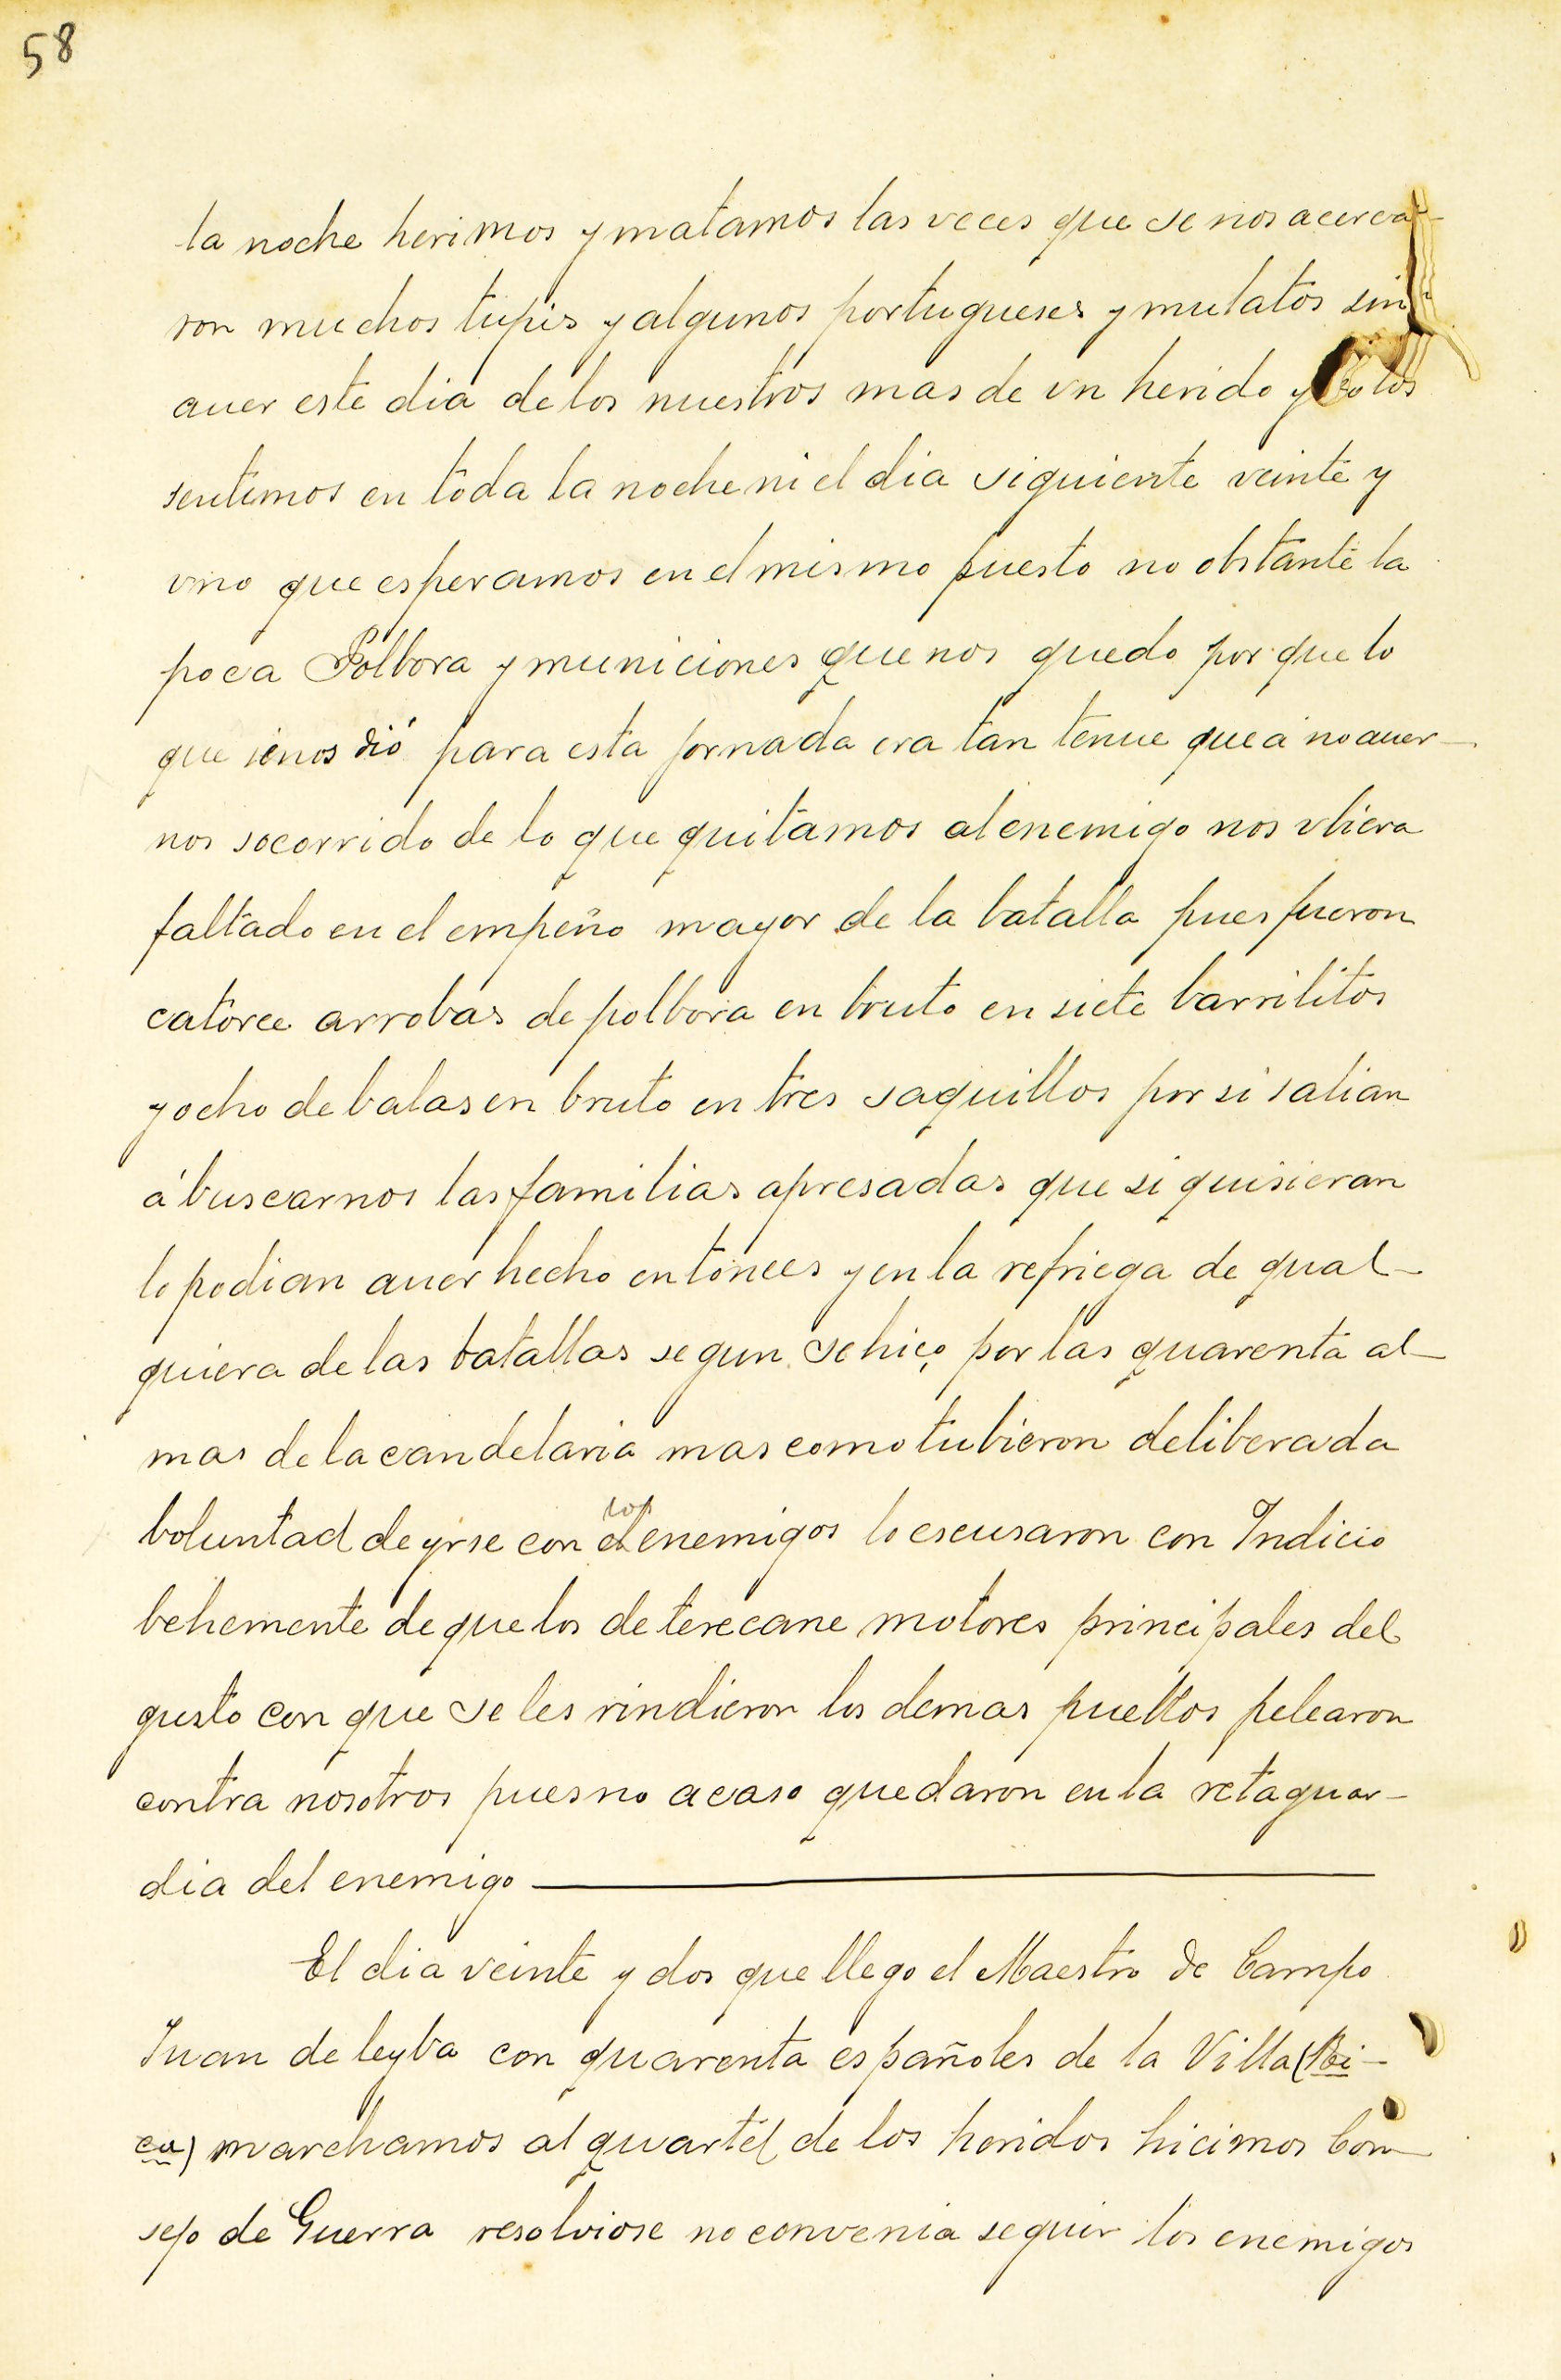 58
la noche herimos y matamos las veces que se nos acerca-
ron muchos tupis y algunos portugueses y mulatos sin
auer este dia de los nuestros mas de vn herido y los
sentimos en toda la noche ni el dia siguiente veinte y
vno que esperamos en el mismo puesto no obstante la
poca Polbora y municiones que nos quedo por que lo
que se nos dió para esta jornada era tan tenue que a no auer-
nos socorrido de lo que quitamos al enemigo nos vbiera
faltado en el empeño mayor de la batalla pues fueron
catorce arrobas de polbora en bruto en siete barrilitos
y ocho de balas en bruto en tres saquillos por si salian
á buscarnos las familias apresadas que si quisieran
lo podian auer hecho entonces y en la refriega de qual-
quiera de las batallas segun se hiço por las quarenta al-
mas de la candelaria mas como tubieron deliberada
boluntad de yrse con los enemigos lo escusaron con Indicio
behemente de que los de terecane motores principales del
gusto con que se les rindieron los demas pueblos pelearon
contra nosotros pues no acaso quedaron en la retaguar-
dia del enemigo
El dia veinte y dos que llego el Maestro de Campo
Juan de leyba con quarenta españoles de la Villa (Ri-
ca) marchamos al quartel de los heridos hicimos Con-
sejo de Guerra resolviose no convenia seguir los enemigos